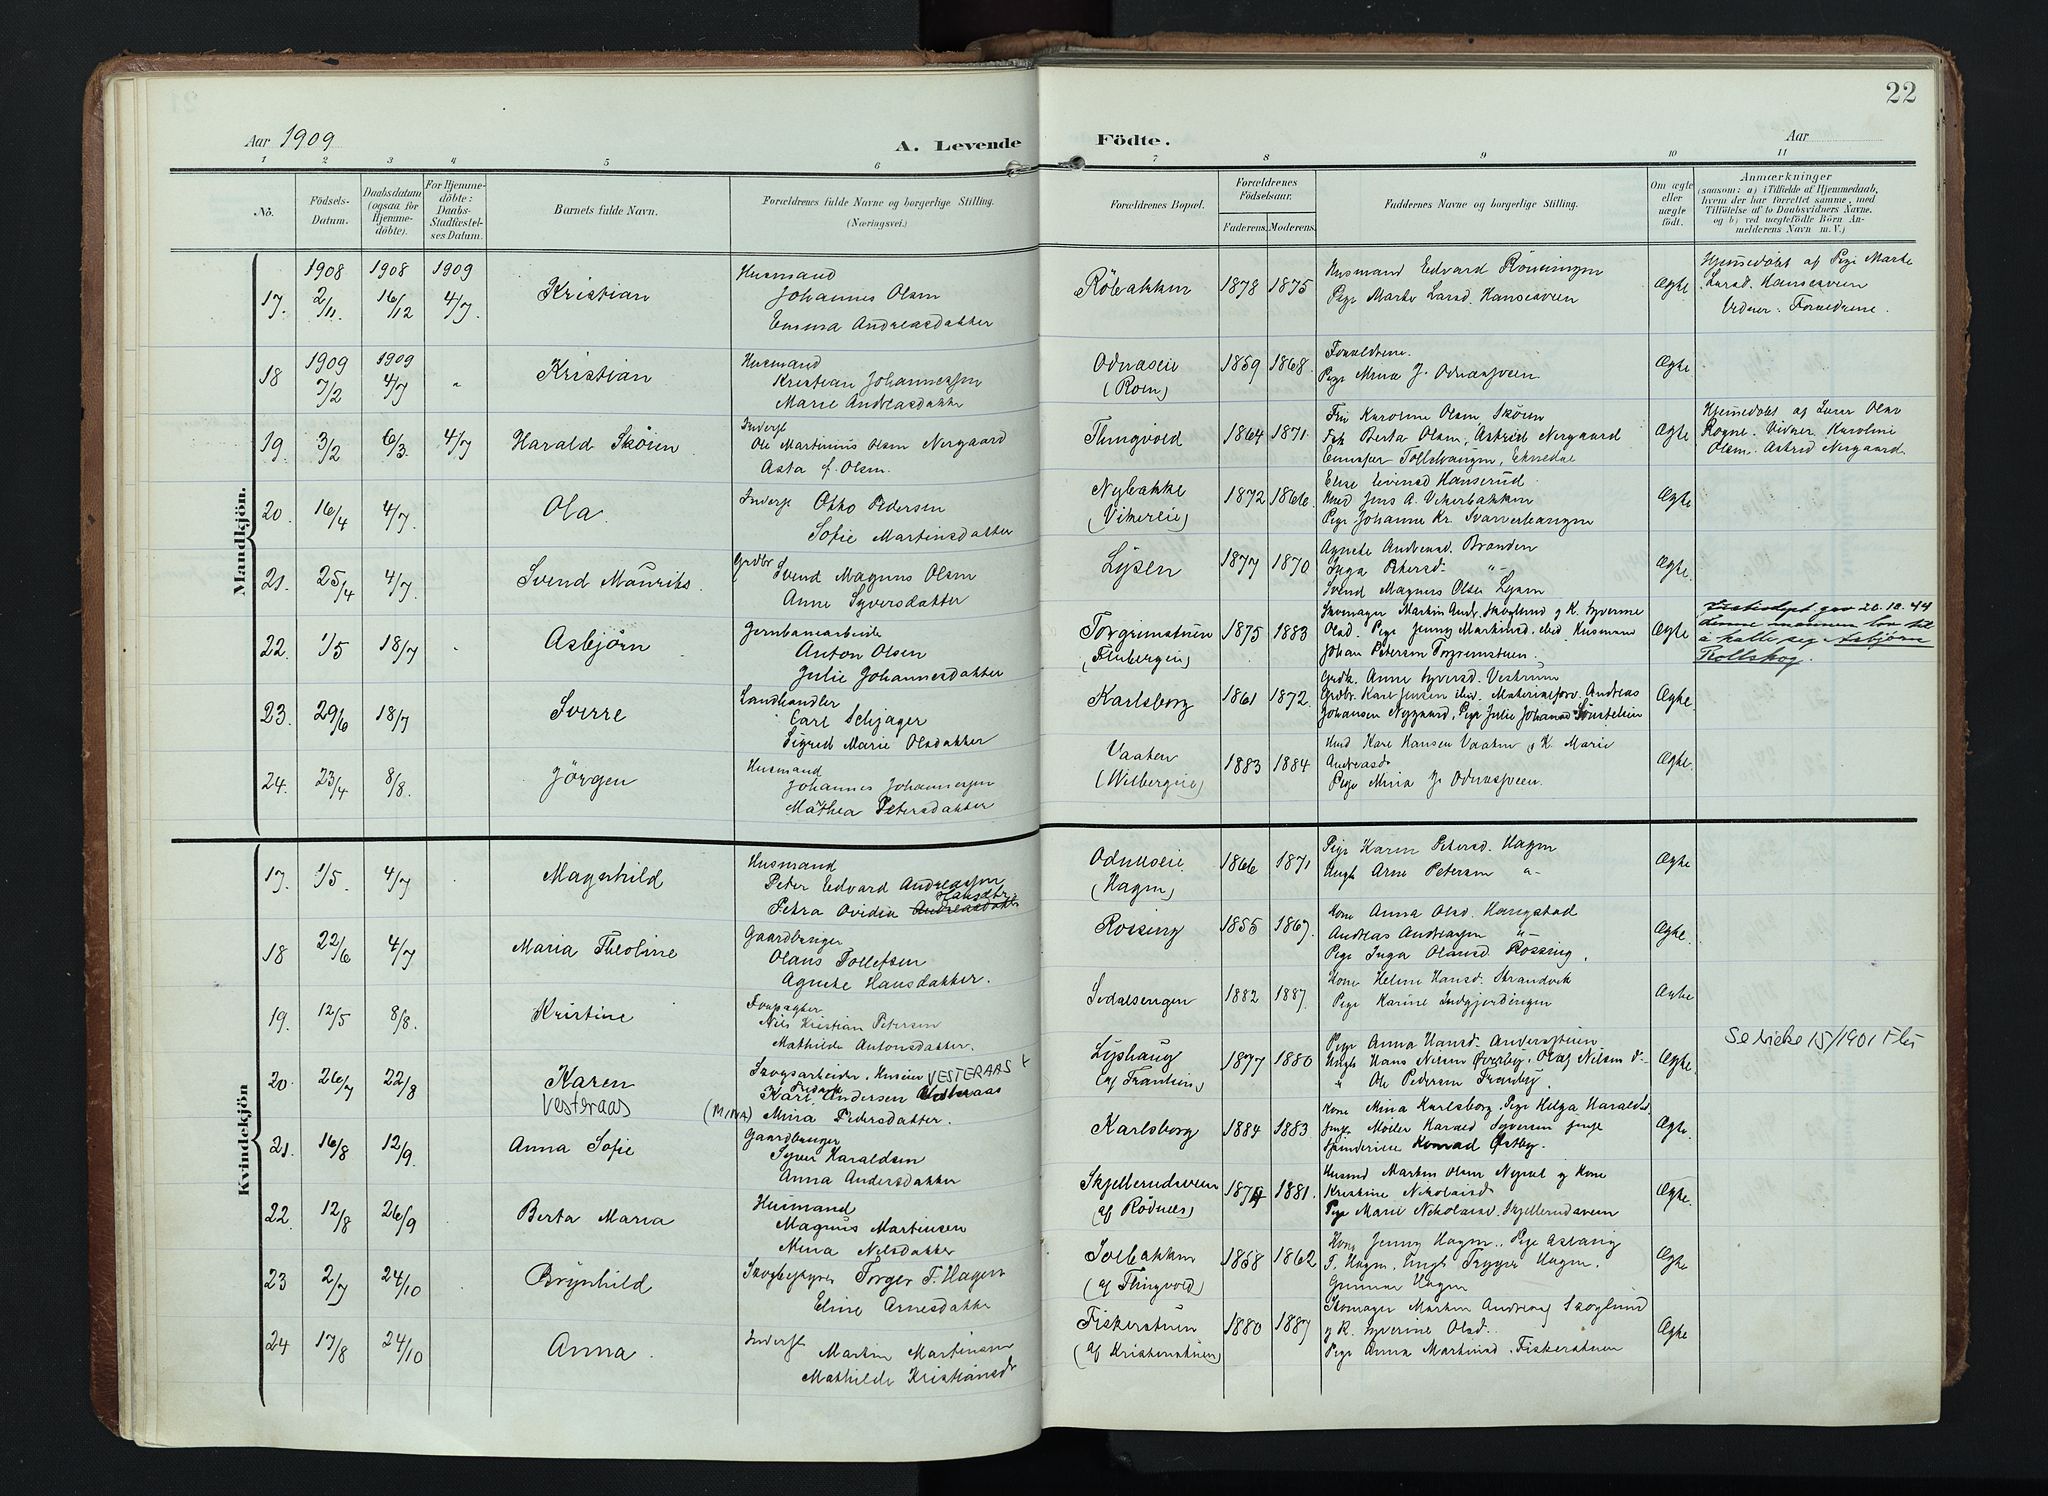 22
Aar 1909
A. Levende
Födte.
Aar
1 2 3 4 5 6 7 8 9 10 11
No.
Födsels-
Datum.
Daabsdatum
(ogsaa for
Hjemme-
döbte).
For Hjemme-
döbte:
Daabs-
Stadfæstel-
ses Datum.
Barnets fulde Navn.
Forældrenes fulde Navne og borgerlige Stilling.
(Næringsvei.)
Forældrenes Bopæl.
Forældrenes
Födselsaar.
Faderens. Moderens.
Faddernes Navne og borgerlige Stilling.
Om ægte
eller
uægte
födt.
Anmærkninger
(saasom: a) i Tilfælde af Hjemmedaab,
hvem der har forrettet samme, med
Tilföielse af to Daabsvidners Navne,
og b) ved uægtefödte Börn An-
melderens Navn m. V.)
Mandkjön.
1908 1908 1909
17. 2/11. 16/12 4/7. Kristian
Husmand
Johannes Olsen
Emma Andreasdatter
Röbakken 1878 1875
Husmand Edvard Rönningen
Pige Marte Larsd. Hanseveen
Ægte
Hjemmedöbt af Pige Marte
Larsd. Hanseveen
Vidner: Forældrene.
1909 1909
18 7/2 4/7 " Kristian
Husmand
Kristian Johannessen
Marie Andreasdatter
Odnæseie
(Roen)
1859 1868.
Forældrene.
Pige Mina J. Odnæsveen.
Ægte
19. 3/2 6/3. 4/7 Harald Sköien
Inderst
Ole Martinius Olsen Nergaard
Asta f. Olsen.
Flingvold 1864 1871.
Frk Karoline Olsen, Sköien
Frk Berta Olsen, Astrid Nergaard
Tollefvangen,
Ægte
Hjemedöbt af Lærer Olav
Rogne. Vidner. Karoline
Olsen. Astrid Nergaard
20. 16/4 4/7. Ola
Inderst Otto Pedersen
Sofie Martinsdatter
Nybakke
(Vikereie)
1872 1866.
Elise Hanserud
Jens A. Vikerbakken
Pige Johanne Kr.
Ægte
21. 25/4 4/7. Svend Mauritz.
Grdbr
Svend Magnus Olsen
Anne Syversdatter
Lysen 1877 1870
Agnete Andreasd. Branden
Inga Petersd. "
Svend Magnus Olsen Lysen
Ægte.
22. 1/5 18/7 Asbjörn
Jernbanearbeider
Anton Olsen
Julie Johannesdatter
Torgrimstuen
(Finbergeie)
1875 1883
Skomager Martin Andr. Skoglund og K. Syverine
Olsd. Pige Jenny Martinsd. ibid, Husmand
Johan Petersen Torgrimstuen.
Ægte
gav 20.10.44
denne mannen lov til
å kalle seg Asbjørn
Rollskog.
23. 29/6 18/7 Sverre
Landhandler
Carl Schjager
Sigrid Marie Olsdatter
Karlsborg 1861 1872.
Grdk. Anne Syversd. Vestrum
Grdbr. Karl Jensen ibid. Andreas
Johansen Nygaard, Pige Julie Johansd
Ægte.
24. 23/4 8/8. Jörgen
Husmand
Johannes Johannesen
Mathea Petersdatter
Vaaten
(Wilbergeie)
1883 1884
Hmd Kare Hansen Vaaten og K. Marie
Andreasd.
Pige Mina J. Odnæsveen.
Ægte.
Kvindekjön
17. 1/5. 4/7 Magnhild
Husmand
Peter Edvard Andreassen
Hansdtr
Petra Ovidia Andreasdatter
Odnæseie
(Hagen)
1866 1871
Pige Karen Petersd. Hagen
Ungk Arne Petersen "
Ægte
18 22/6 4/7 Maria Theoline
Gaardbruger
Olaus Tollefsen
Agnete Hansdatter.
Rossing 1855 1867.
Kone Anna Olsd. Haugstad
Andreas Andreasen "
Pige Inga Olausd. Rossing.
Ægte.
19. 12/5 8/8. Kristine
Forpagter
Nils Kristian Petersen
Mathilde Antonsdatter.
Sedalsengen 1882 1887.
Kone Helene Hansd. Strandvik
Pige Karine Indgjerdingen
Ægte
20. 26/7 22/8 Karen
Vesteraas
Skogsarbeider, Huseier VESTERAAS +
Fredrik
Karl Andersen Vesteraas
(MINA) Mina Pedersdatter.
Lyshaug
(af Frantsens)
1877 1880
Pige Anna Hansd. Anderstuen
Ungk Hans Nilsen Överby, Olaf Nilsen do
" Ole Pedersen Frøisby.
Ægte.
15/1901
21. 16/8 12/9. Anna Sofie
Gaardbruger
Syver Haraldsen
Anna Andersdatter
Karlsborg 1884 1883.
Kone Mina Karlsborg. Pige Helga Haraldsd.
Harald Syversen
Konrad Østby.
Ægte.
22. 12/8 26/9 Berta Maria
Husmand
Magnus Martinsen
Mina Nilsdatter
Skjellerudsveen
(af Rödnes)
1874 1881.
Husmd Martin Olsen og Kone
Kristine Nikolaisd
Pige Marie Nikolaisd. Skjellerudsveen
Ægte.
23 2/7 24/10 Brynhild
Skogbestyrer Torger T. Hagen
Eline Arnesdatter
Solbakken
(af Flingvold)
1858 1862
Kone Jenny Hagen, Pige Aslaug
T. Hagen, Ungk Trygve Hagen,
Gunnar Hagen
Ægte
24 17/8 24/10 Anna.
Inderst
Martin Martinsen
Mathilde Kristiansd
Fiskerstuen
(af Kristenstuen)
1880 1887
Skomager Martin Andreas Skoglund
og K. Syverine Olsd.
Pige Anna Martinsd. Fiskerstuen
Ægte